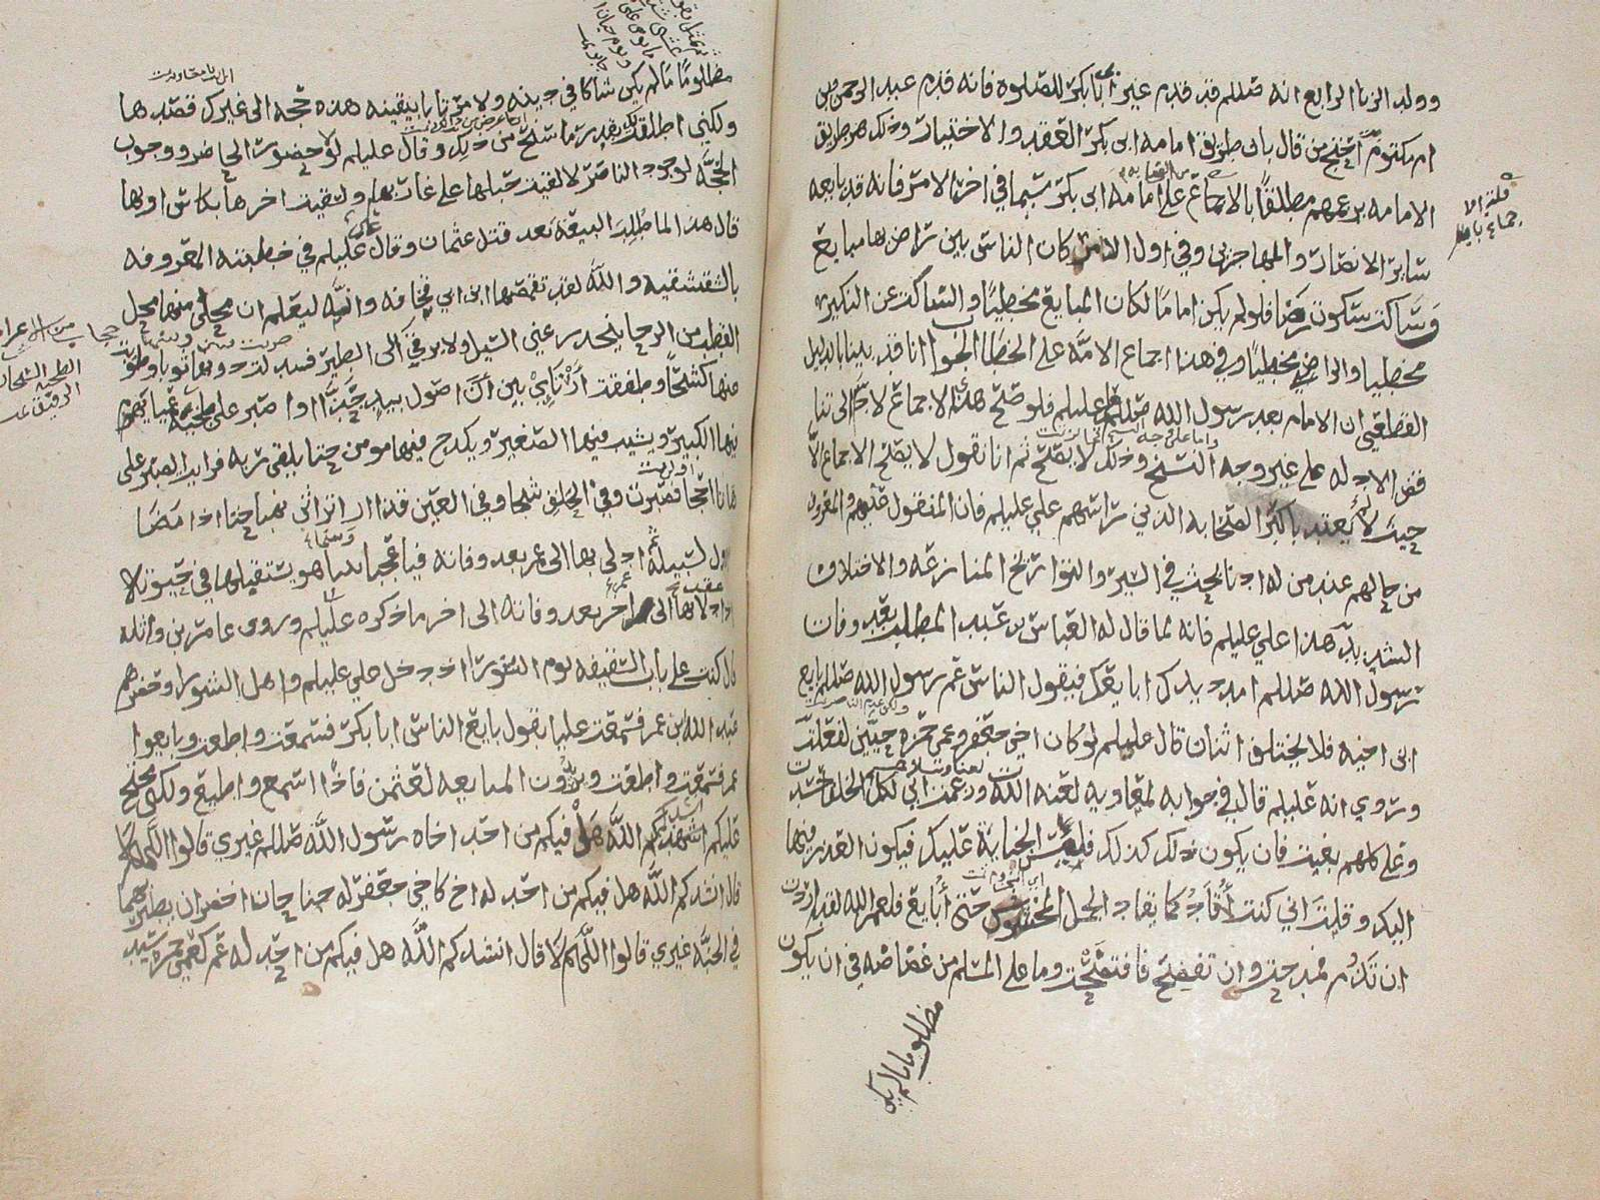 وولد الزنا الرابع انه صللم قد قدم غير ابا بكر للصلوة فانه قدم عبد الرحمن بن
ام مكتوم احتج من قال بان طريق امامه ابي بكر العقد والاختيار وذلك هو طريق
الامامه عندهم مطلقا بالاجماع على امامه ابي بكر سيما في اخر الامر فانه قد بايعه
ساير الانصار والمهاجرين وفي اول الامر كان الناس بين راض بها مبايع
وساكت سكوت رضا فلو لم يكن اماما لكان المبايع مخطيا والساكت عن النكير
مخطيا والراضي مخطيا وفي هذا اجماع الامه على الخطا الجواب انا قد بينا بالدليل
القطعي ان الامام بعد رسول الله صللم علي عليلم فلو صح هذا الاجماع لادى الى تنا
قض الادله على غير وجه النسخ وذلك لا يصح ثم انا نقول لا يصح الاجماع الا
حيث لا يعتد باكبر الصحابه الذين راسهم علي عليلم فان المنقول عنهم والمعروف
من حالهم عند من له ادنا بحث في السير والتواريخ المنازعه والاختلاف
الشديد هذا علي عليلم فانه لما قال له العباس بن عبد المطلب بعد وفات
رسول الله صللم امدد يدك ابايعك فيقول الناس عم رسول الله صللم بايع
ابن اخيه فلا يختلف اثنان قال عليلم لو كان اخي جعفر وعمي حمزه حيين لفعلت
وروي انه عليلم قال في جوابه لمعاويه لعنه الله وزعمت اني لكل الخلفا حسدت
وعلى كلهم بغيت فان يكون ذلك كذلك فليست الجنايه عليك فيكون العذر فيها
اليك وقلت اني كنت اقاد كما يقاد الجمل المخشوش حتى ابايع فلعمر الله لقد اردت
ان تذم فمدحت وان تفضح فافتضحت وما على المسلم من غضاضه في ان يكون
مظلوما ما لم يكن
مظلوما ما لم يكن شاكا في دينه ولا مرتابا بيقينه هذه حجه الى غيرك قصدها
ولكني اطلقت لك بقدر ما سنح من ذلك وقال عليلم لولا حضور الحاضر ووجوب
الحجه لوجود الناصر لالقيت حبلها على غاربها ولسقيت اخرها بكاس اولها
قال هذا لما طلب البيعه بعد قتل عثمان وقال عليلم في خطبته المعروفه
بالشقشقيه والله لقد تقمصها ابن ابي قحافه وانه ليعلم ان محلي منها محل
القطب من الرحا ينحدر عني السيل ولا يرقى الى الطير فسدلت دونها ثوبا وطويت
عنها كشحا وطفقت ارتاي بين ان اصول بيد جذا او اصبر على طخيه عميا يهرم
فيها الكبير ويشيب فيها الصغير ويكدح فيها مومن حتا يلقى ربه فرايت الصبر على
هاتا احجا فصبرت وفي الحلق شجا وفي العين قذا ارا تراثي نهبا حتا اذا مضا
الاول لسبيله ادلى بها الى عمر بعد وفاته فيا عجبا بينا هو يستقيلها في حيوته
اذ ادلا بها الى اخر بعد وفاته الى اخر ما ذكره عليلم وروى عامر بن واثله
قال كنت على باب السقيفه يوم الشورا اذ دخل علي عليلم واهل الشورا وحضرهم
عبد الله بن عمر فسمعت عليا يقول بايع الناس ابا بكر فسمعت واطعت وبايعوا
عمر فسمعت واطعت ويريدون المبايعه لعثمن فاذا اسمع واطيع ولكني محتج
عليكم انشدكم الله هل فيكم من احد اخاه رسول الله صللم غيري قالوا اللهم لا
قال انشدكم الله هل فيكم من احد له اخ كاخي جعفر له جناحان اخضران يطير بهما
في الجنه غيري قالوا اللهم لا قال انشدكم الله هل فيكم من احد له عم كعمي حمزه سيد